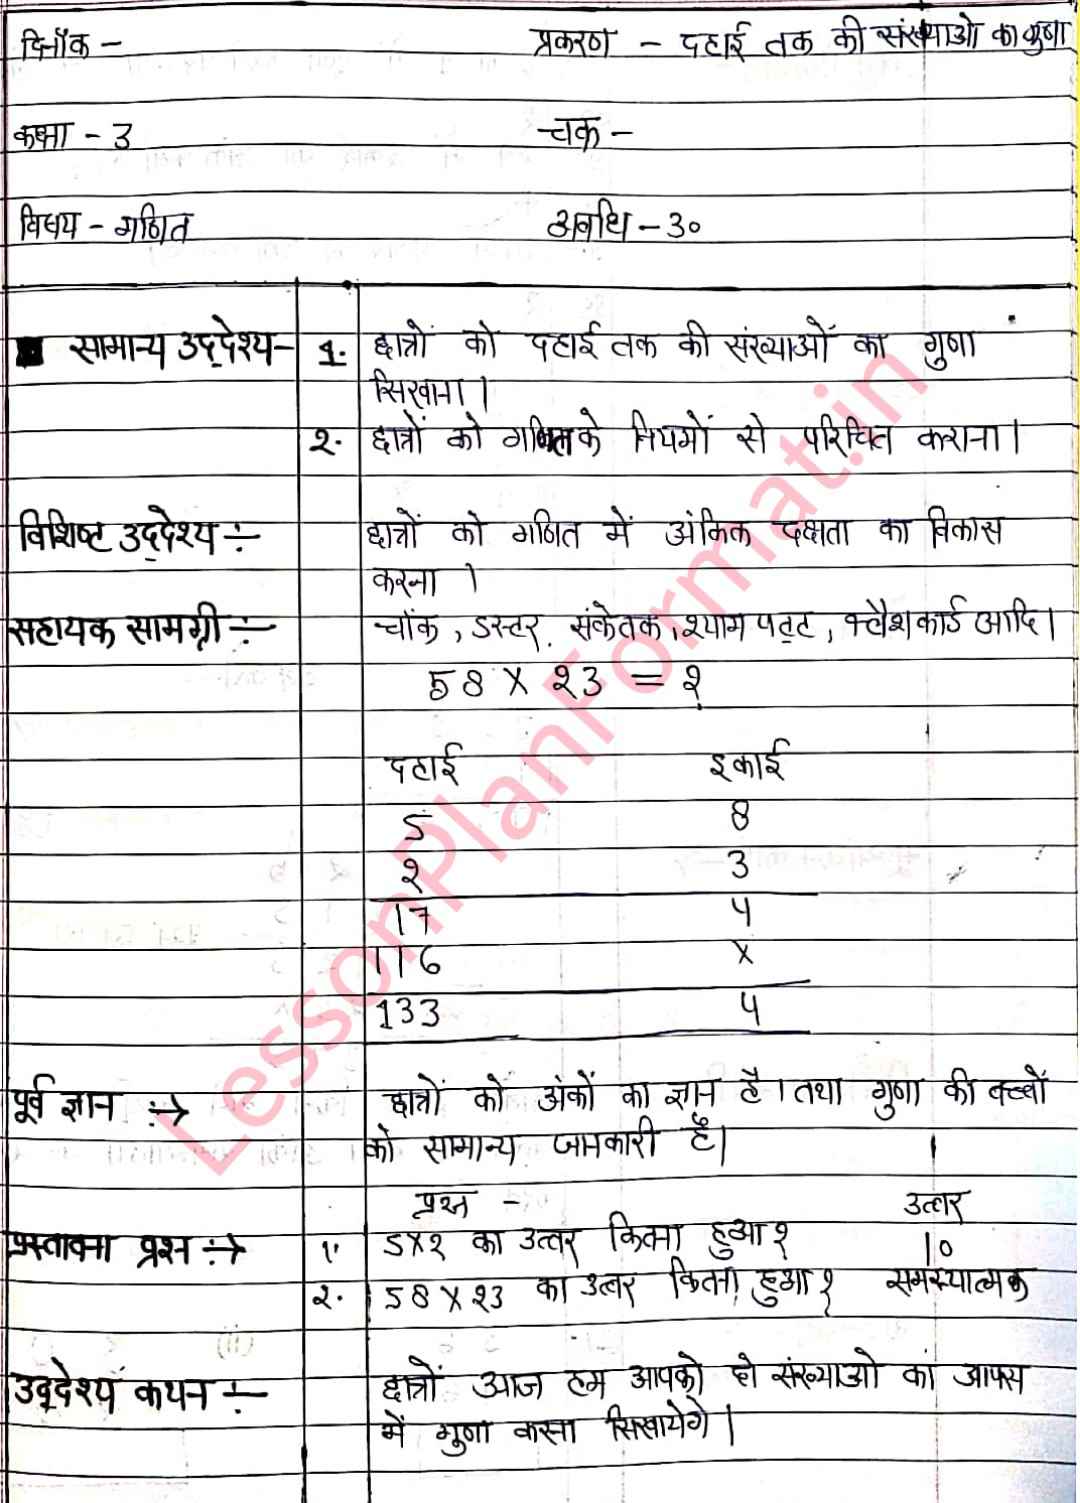 दिनाँक -    प्रकरण - दहाई तक की संख्याओ का गुणा
कक्षा - 3    चक्र -
विषय - गणित    अवधि - 30
सामान्य उद्देश्य -    1.    छात्रों को दहाई तक की संख्याओं का गुणा
सिखाना।
2.    छात्रों को गणित के नियमों से परिचित कराना।
विशिष्ट उद्देश्य :-    छात्रों को गणित में अंकित दक्षता का विकास
करना ।
सहायक सामग्री :-    चॉक, डस्टर, संकेतक, श्याम पट्ट, फ्लैश कार्ड आदि।
58 X 23 = ?
दहाई    इकाई
5    8
2    3
17    4
116    X
133    4
पूर्व ज्ञान :→    छात्रों को अंकों का ज्ञान है। तथा गुणा की बच्चों
को सामान्य जानकारी है।
प्रश्न -    उत्तर
प्रस्तावना प्रश्न :→    1.    5X2 का उत्तर कितना हुआ?    10
2.    58 X 23 का उत्तर कितना हुआ?    समस्यात्मक
उद्देश्य कथन :-    छात्रों आज हम आपको दो संख्याओ का आपस
में गुणा करना सिखायेगे।
LessonPlanFormat.in